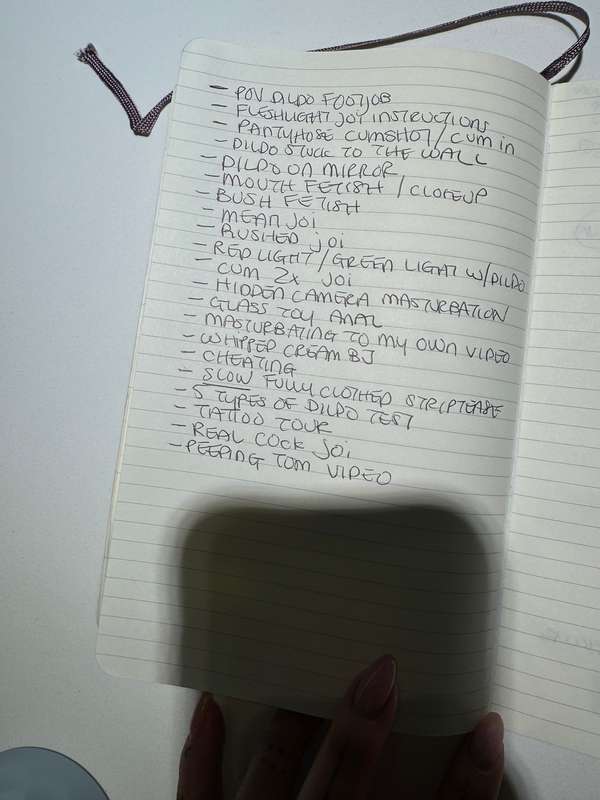 - POV DILDO FOOTJOB
- FLESHLIGHT JOI INSTRUCTIONS
- PANTYHOSE CUMSHOT / CUM IN
- DILDO STUCK TO THE WALL
- DILDO ON MIRROR
- MOUTH FETISH / CLOSEUP
- BUSH FETISH
- MEAN JOI
- RUSHED JOI
- RED LIGHT / GREEN LIGHT W/ DILDO
- CUM 2x JOI
- HIDDEN CAMERA MASTURBATION
- GLASS TOY ANAL
- MASTURBATING TO MY OWN VIDEO
- WHIPPED CREAM BJ
- CHEATING
- SLOW FULLY CLOTHED STRIPTEASE
- 5 TYPES OF DILDO TEST
- TATTOO TOUR
- REAL COCK JOI
- PEEPING TOM VIDEO